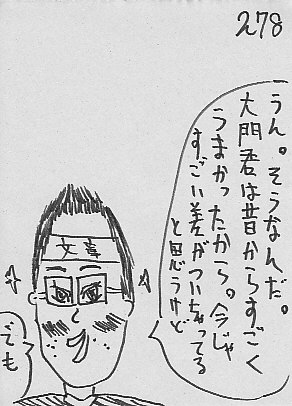 278
うん。そうなんだ。
大門君は昔からすごく
うまかったから。今じゃ
すごい差がついちゃってる
と思うけど
でも